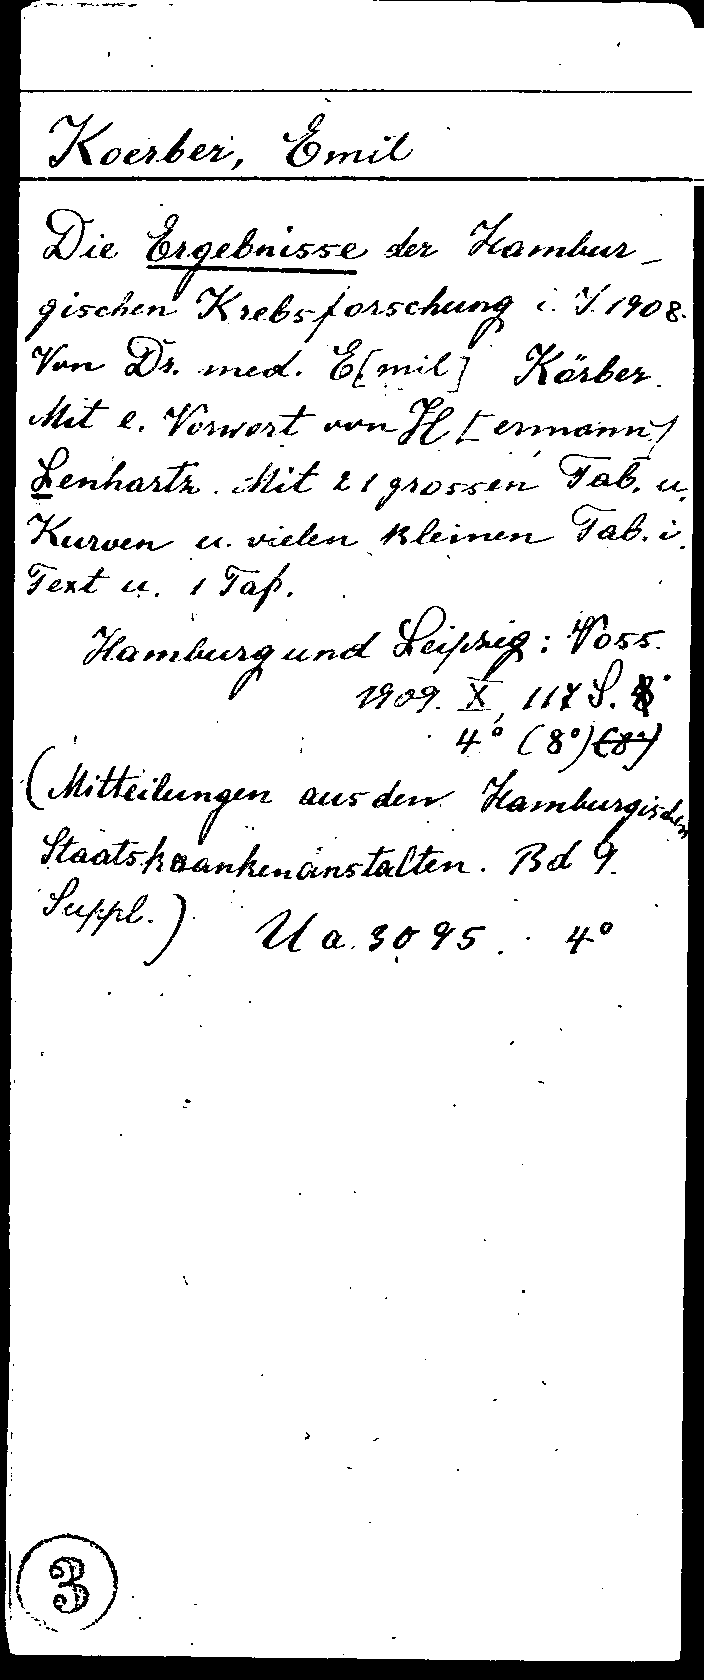 Koerber, Emil
Die Ergebnisse der Hambur-
gischen Krebsforschung i. J. 1908.
Von Dr. med. E[mil] Körber.
Mit e. Vorwort von H[ermann]
Lenhartz. Mit 21 grossen Tab. u.
Kurven u. vielen kleinen Tab. i.
Text u. 1 Taf.
Hamburg und Leipzig: Voss.
1909. X, 117 S.
4° (8°) (8°)
(Mitteilungen aus den Hamburgischen
Staatskrankenanstalten. Bd 9.
Suppl.)
U a. 3095. 4°
3